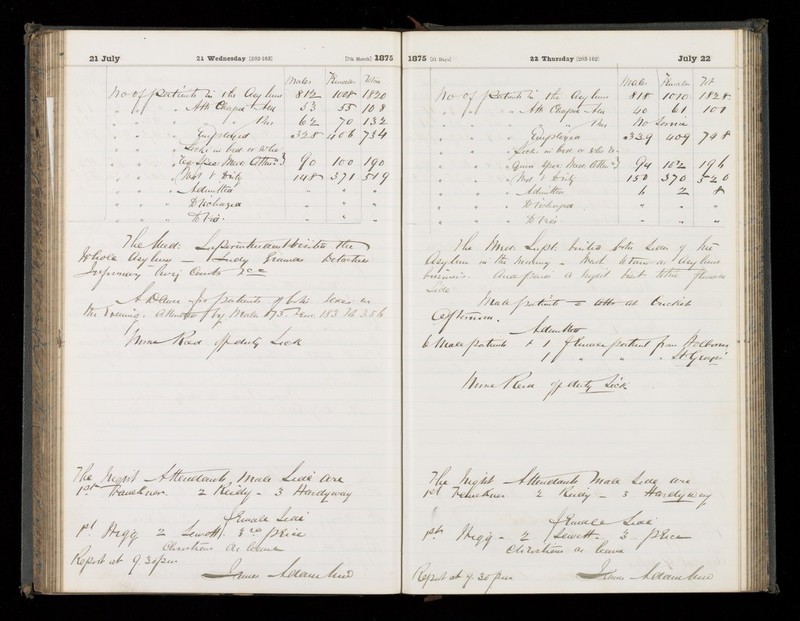 21 July 21 Wednesday [202-163] [7th Month] 1875
Males Females Total
No of patients in the Asylum 812 1008 1820
" " " " Att Chapel - Mn 53 55 108
" " " " " " 62 70 132
" " " " Employed 328 406 734
" " " " Sick in bed or who
req Spec Med Atten 90 100 190
" " " " Wet & Dirty 148 371 519
" " " " Admitted " " "
" " " " Discharged " " "
" " " " Died " " "
The Med. Superintendent visited the
Whole Asylum
Infirmary
A Dance for patients of both sexes in
the Evening. Attended by Males 173 Fem. 183 Tot 356
Nurse Read off duty Sick
The Night Attendants Male Side are
1st Faulkner. 2 Reidy - 3 Hardyway
Female Side
1st Higg 2 Sewett. 3rd Price
Christian on leave
Report at 9.30 pm
James Adam
1875 [31 Days] 22 Thursday [203-162] July 22
Males Females Tot
No of patients in the Asylum 818 1010 1828
" " " " Att Chapel - Mn 40 61 101
" " " " " " No Service
" " " " Employed 339 409 748
" " " " Sick in bed or who re-
quire Spec Med Atten 94 102 196
" " " " Wet & Dirty 150 370 520
" " " " Admitted 6 2 8
" " " " Discharged " " "
" " " " Died " " "
The Med. Supt. visited both Sides of the
Asylum in the morning - Went to town on Asylum
business. And paid a night visit to the Female
Side
Male patients at Cricket
Afternoon.
Admitted
6 Male patients & 1 Female patient from Holborn
1 " " " St Georges
Nurse Read off duty Sick
The Night Attendants Male Side are
1st Faulkner 2 Reidy - 3 Hardyway
Female Side
1st Higg - 2 Sewett. 3 - Price
Christian on leave
Report at 9.30 pm
James Adam